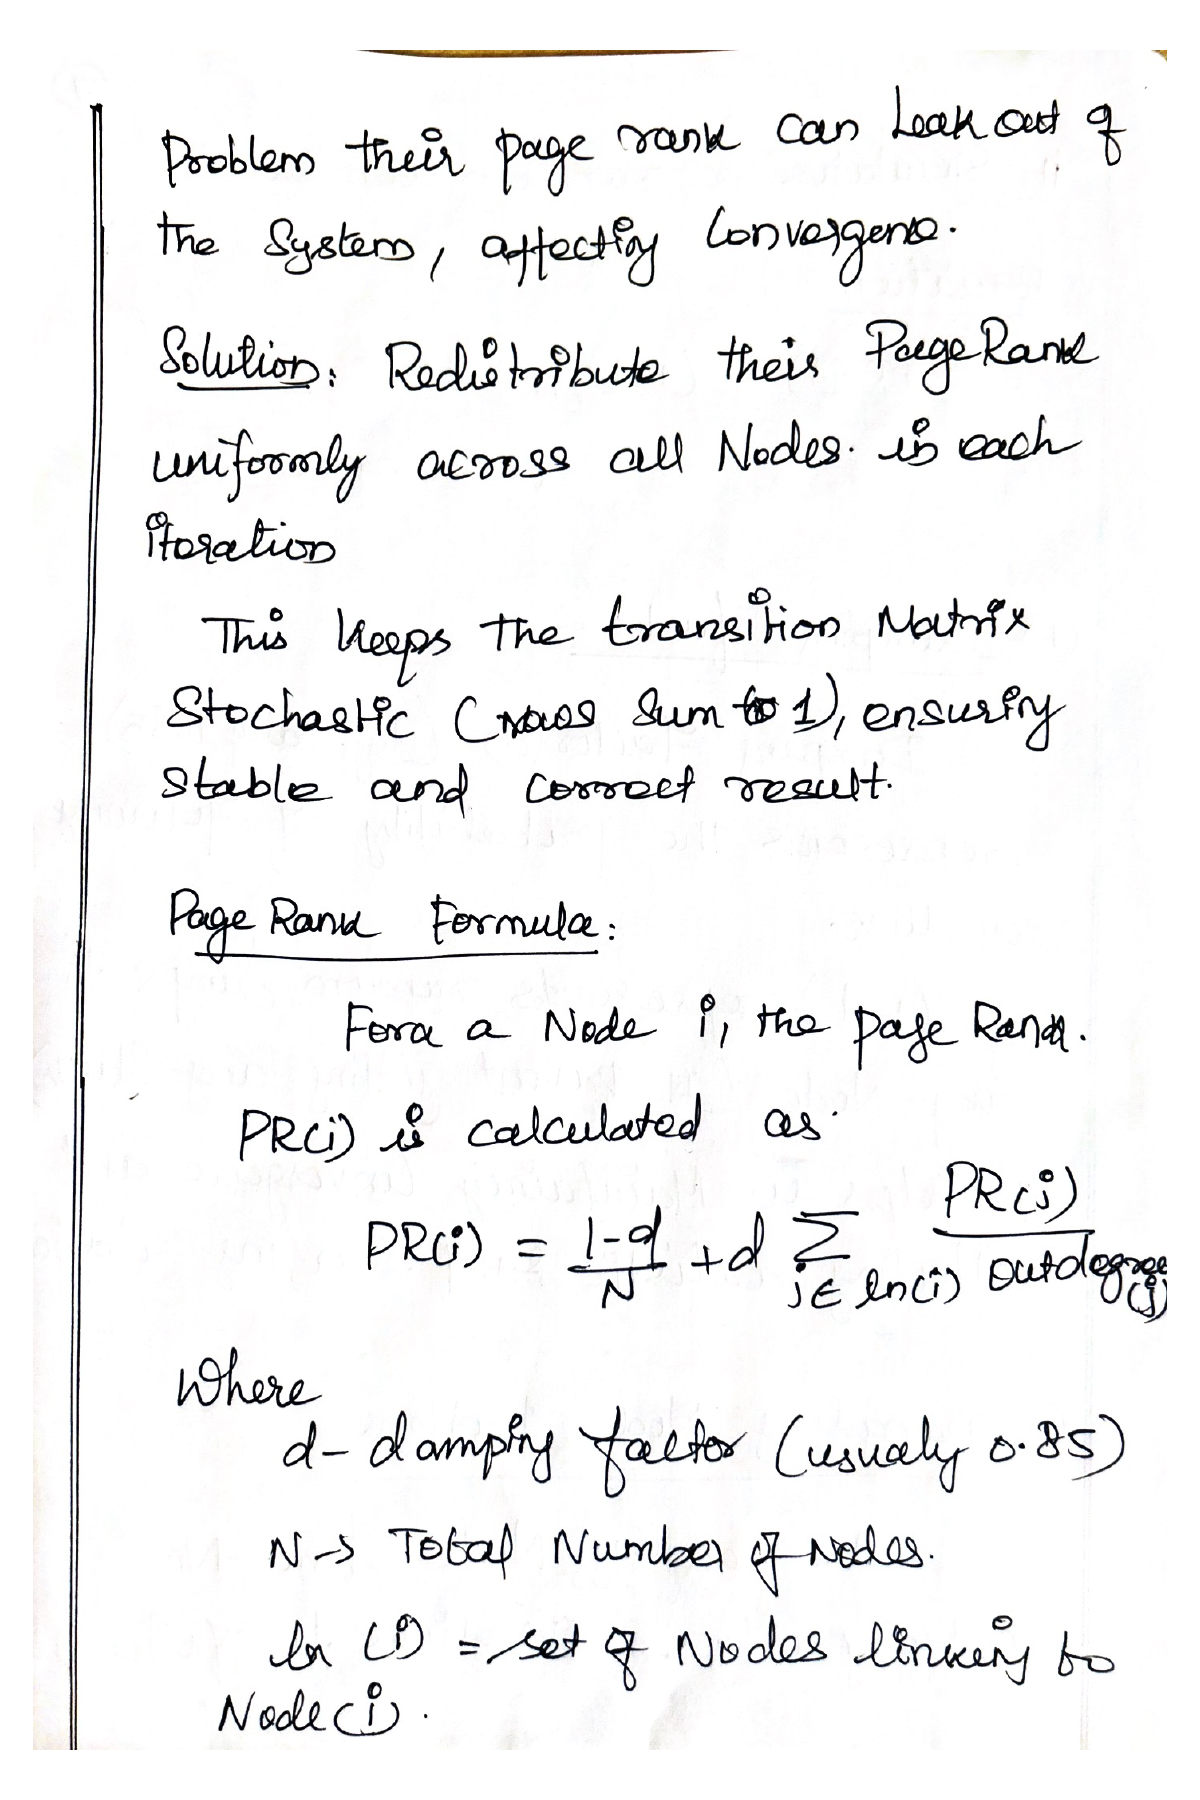 Problem their page rank can Leak out of
the System, affecting Convergence.
Solution: Redistribute their PageRank
uniformly across all Nodes. in each
iteration
This keeps the transition Matrix
Stochastic (rows Sum to 1), ensuring
Stable and correct result.
Page Rank Formula:
Fora a Node i, the page Rank.
PR(i) is calculated as.
PR(i) = 1-d/N + d Σ j∈ In(i) PR(j)/outdegree(j)
Where
d - damping factor (usualy 0.85)
N → Total Number of Nodes.
In (i) = set of Nodes linking to
Node(i).